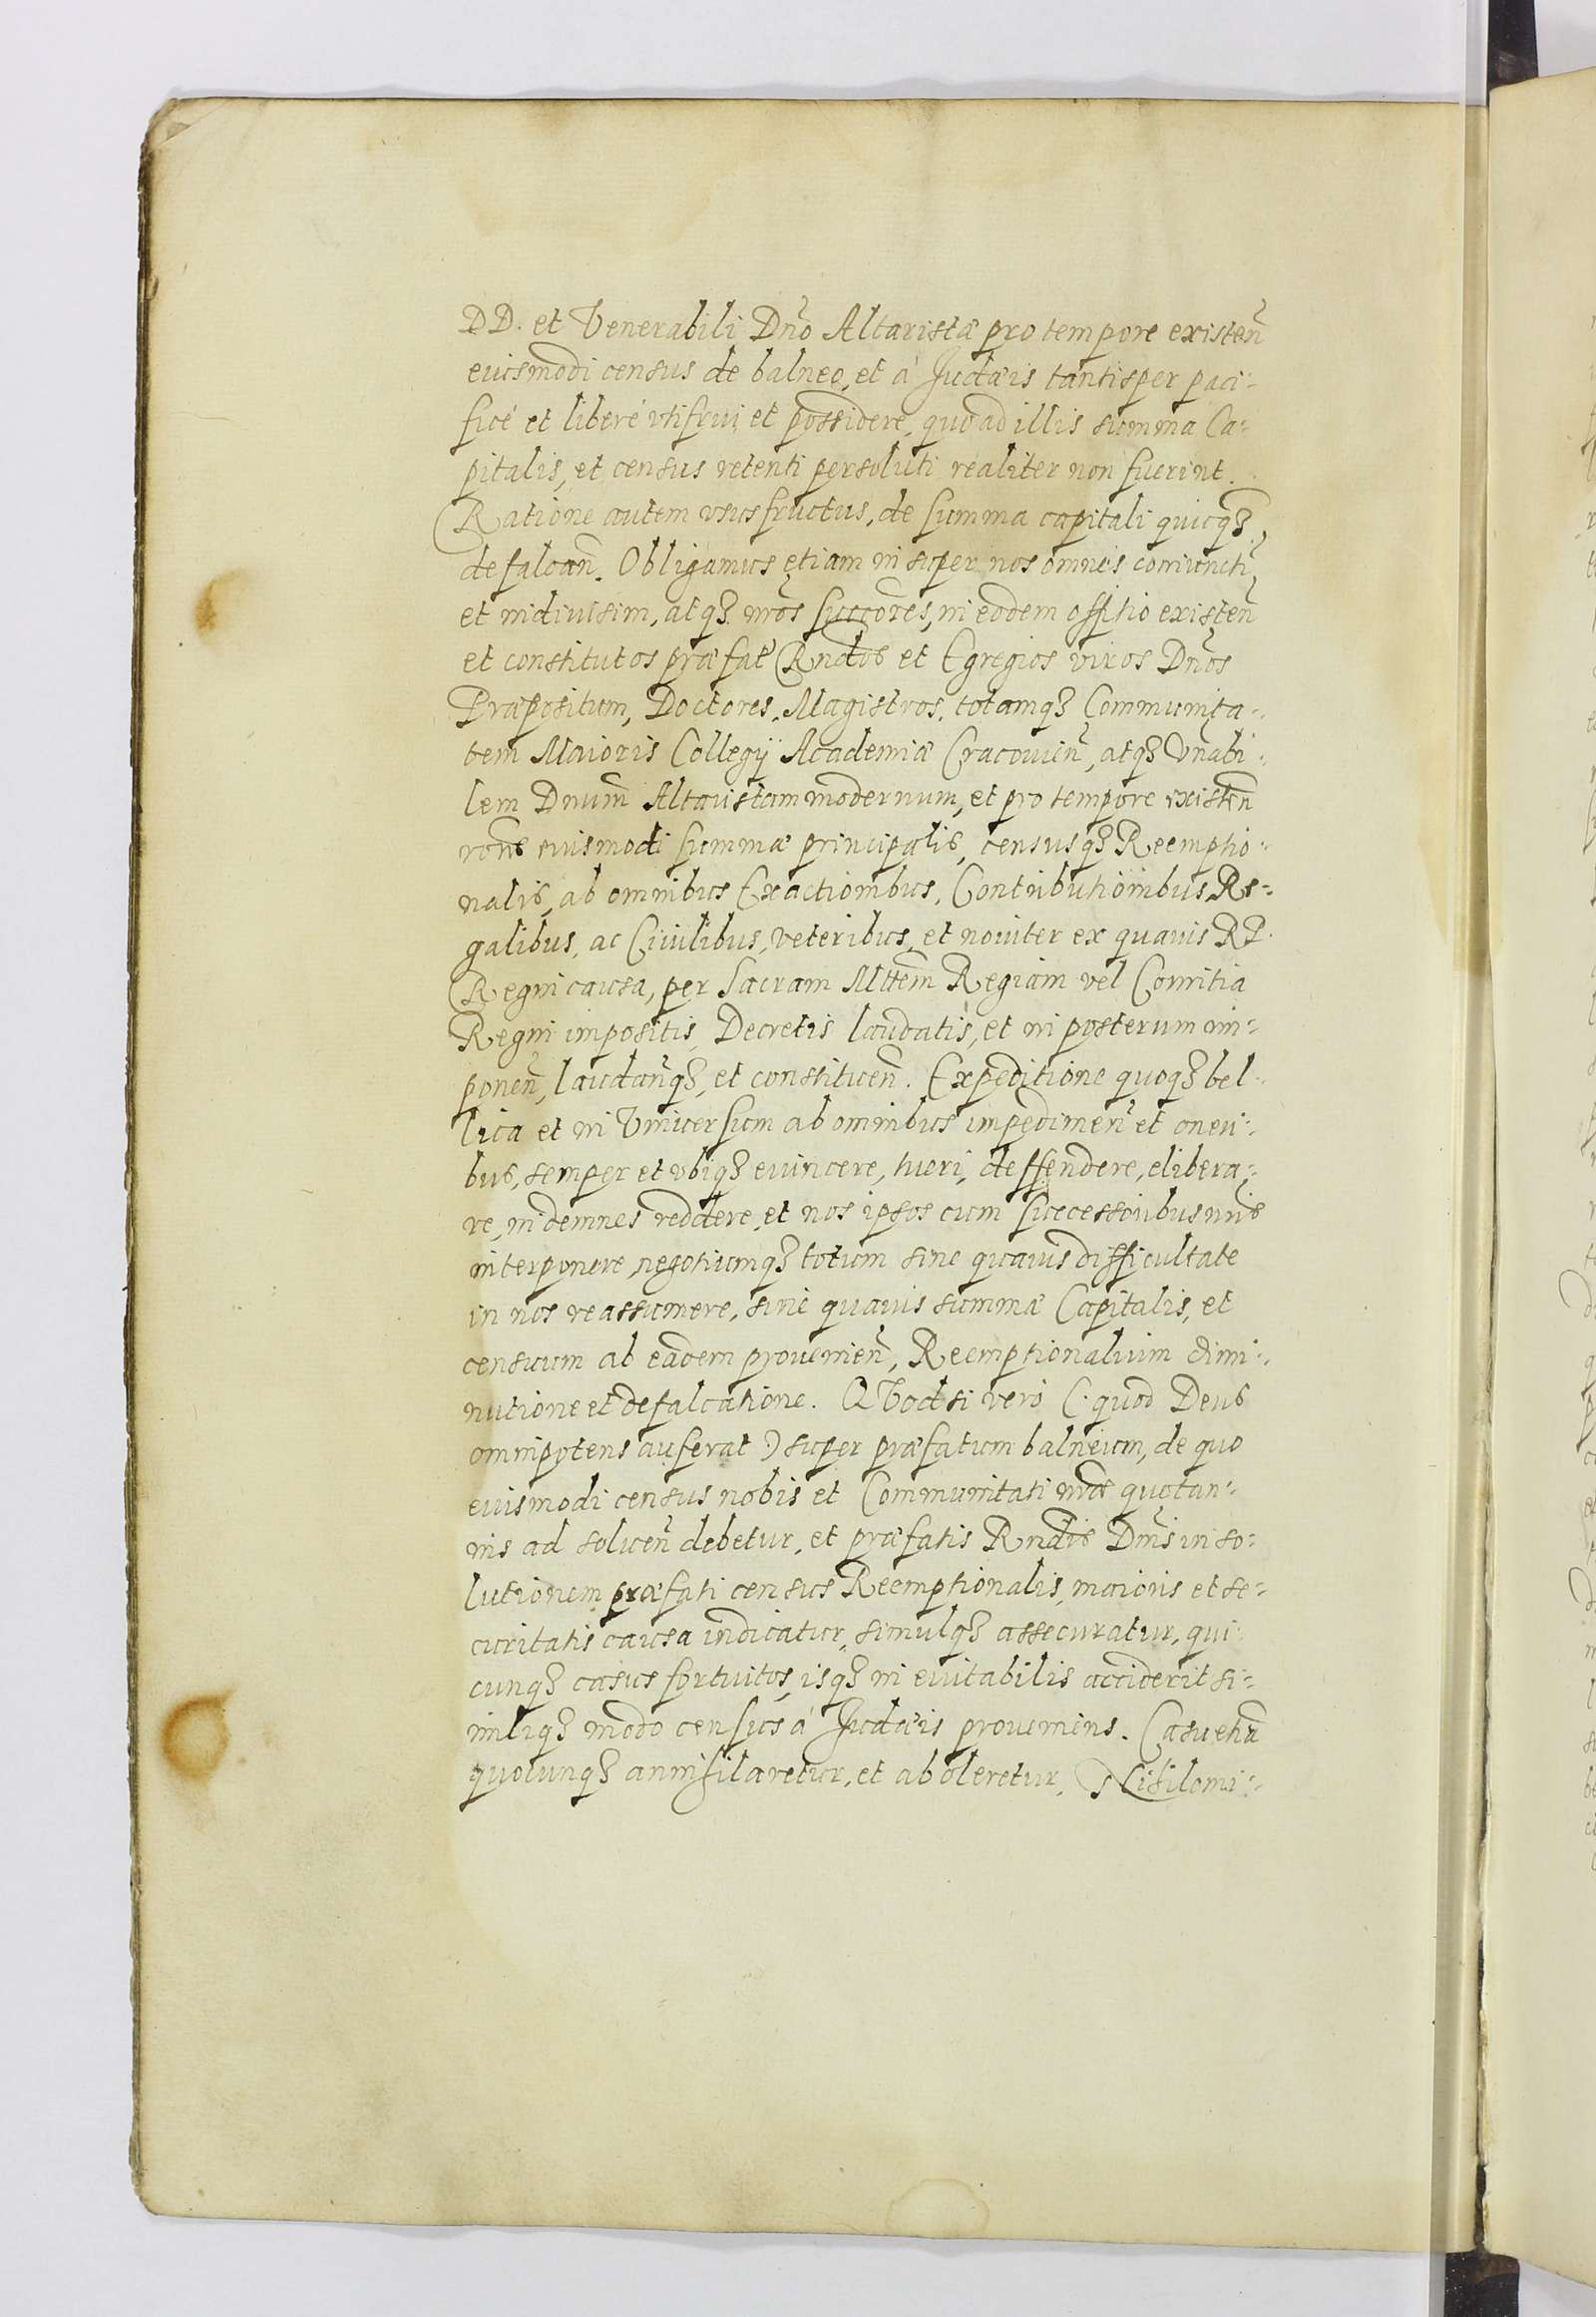 DD. et Venerabili Dño Altaristæ pro tempore existeñ
euismodi census de balneo, et á Judæis tantisper paci=
ficé et liberé vtifrui et possidere, quoad illis summa Ca=
pitalis, et census retenti persoluti realiter non fuerint.
Ratione autem vsusfructus, de summa capitali quicqȝ
defalcañ. Obligamus etiam insuper nos omnes coniuncti
et indiuisim, atqȝ nr̃os succẽores, in eodem offitio existeñ
et constitutos præfat̃ Rndos et Egregios viros Dños
Præpositum, Doctores, Magistros, totamqȝ Communita=
tem Maioris Collegij Academiæ Cracouieñ, atqȝ Vñabi=
lem Dnum̃ Altaristam modernum, et pro tempore existeñ
rõne euismodi summæ principalis, censusqȝ Reemptio=
nalis, ab omnibus Exactionibus, Contributionibus Re=
galibus, ac Ciuilibus, veteribus, et nouiter ex quauis RP.
Regni causa, per Sacram Mttem̃ Regiam vel Comitia
Regni impositis, Decretis laudatis, et in posterum im=
poneñ, laudañqȝ, et constitueñ. Expeditione quoqȝ bel=
lica et in Vniuersum ab omnibus impedimeñ et oneri=
bus, semper et vbiqȝ euincere, tueri, deffendere, elibera=
re, indemnes reddere, et nos ipsos cum successoribus nr̃is
interponere, negotiumqȝ totum sine quauis difficultate
in nos reassumere, sine quauis summæ Capitalis, et
censuum ab eadem prouenieñ, Reemptionalium dimi=
nutione et defalcatione. QVodsi veró (: quod Deus
omnipotens auferat :) super præfatum balneum, de quo
euismodi census nobis et Communitati nr̃æ quotan=
nis ad solueñ debetur, et præfatis Rndis Dñis in so=
lutionem præfati census Reemptionalis, maioris et se=
curitatis causa indicatur, simulqȝ assecuratur, qui
cunqȝ casus fortuitos, isqȝ in euitabilis acciderit si=
miliqȝ modo census á Judæis proueniens. Casu etiã
quocunqȝ annihilaretur, et aboleretur, Nihilomi=